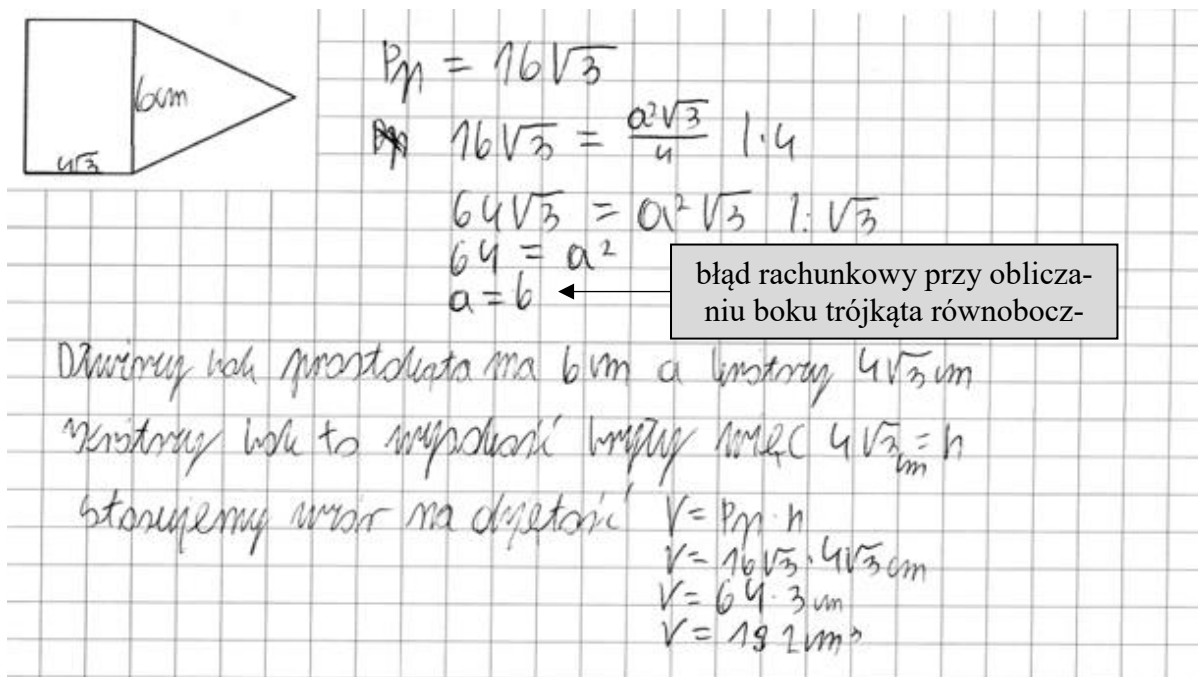 6cm
4√3
Pp = 16√3
16√3 = a²√3/4 |·4
64√3 = a²√3 |:√3
64 = a²
a = 6
błąd rachunkowy przy oblicza-
niu boku trójkąta równobocz-
Dłuższy bok prostokąta ma 6 cm a krótszy 4√3 cm
krótszy bok to wysokość bryły więc 4√3 cm = h
stosujemy wzór na objętość
V = Pp · h
V = 16√3 · 4√3 cm
V = 64 · 3 cm
V = 192 cm³